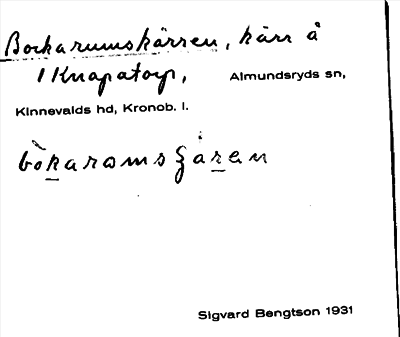 Bockarumskärren, kärr å
1 Knapatorp, Almundsryds sn,
Kinnevalds hd, Kronob. l.
bòkaromsʒären
Sigvard Bengtson 1931